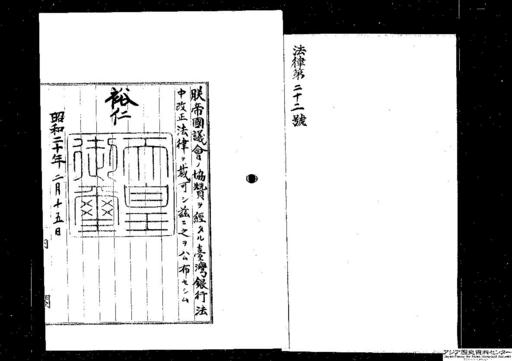 法律第二十二號
朕帝國議會ノ協贊ヲ經タル臺灣銀行法
中改正法律ヲ裁可シ茲ニ之ヲ公布セシム
裕仁
天皇
御璽
昭和二十年二月十五日
アジア歴史資料センター